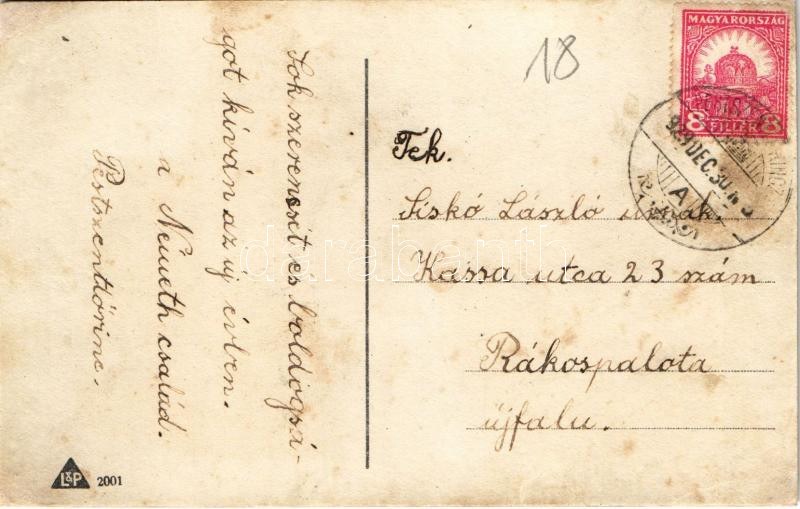 Sok szerencsét és boldogsá-
got kíván az új évben.
a Németh család.
Pestszentlőrinc.
18
MAGYARORSZÁG
8 FILLÉR 8
929 DEC. 30
A
Tek.
Siskó László úrnak.
Kassa utca 23 szám
Rákospalota
újfalu.
L&P 2001
darabanth